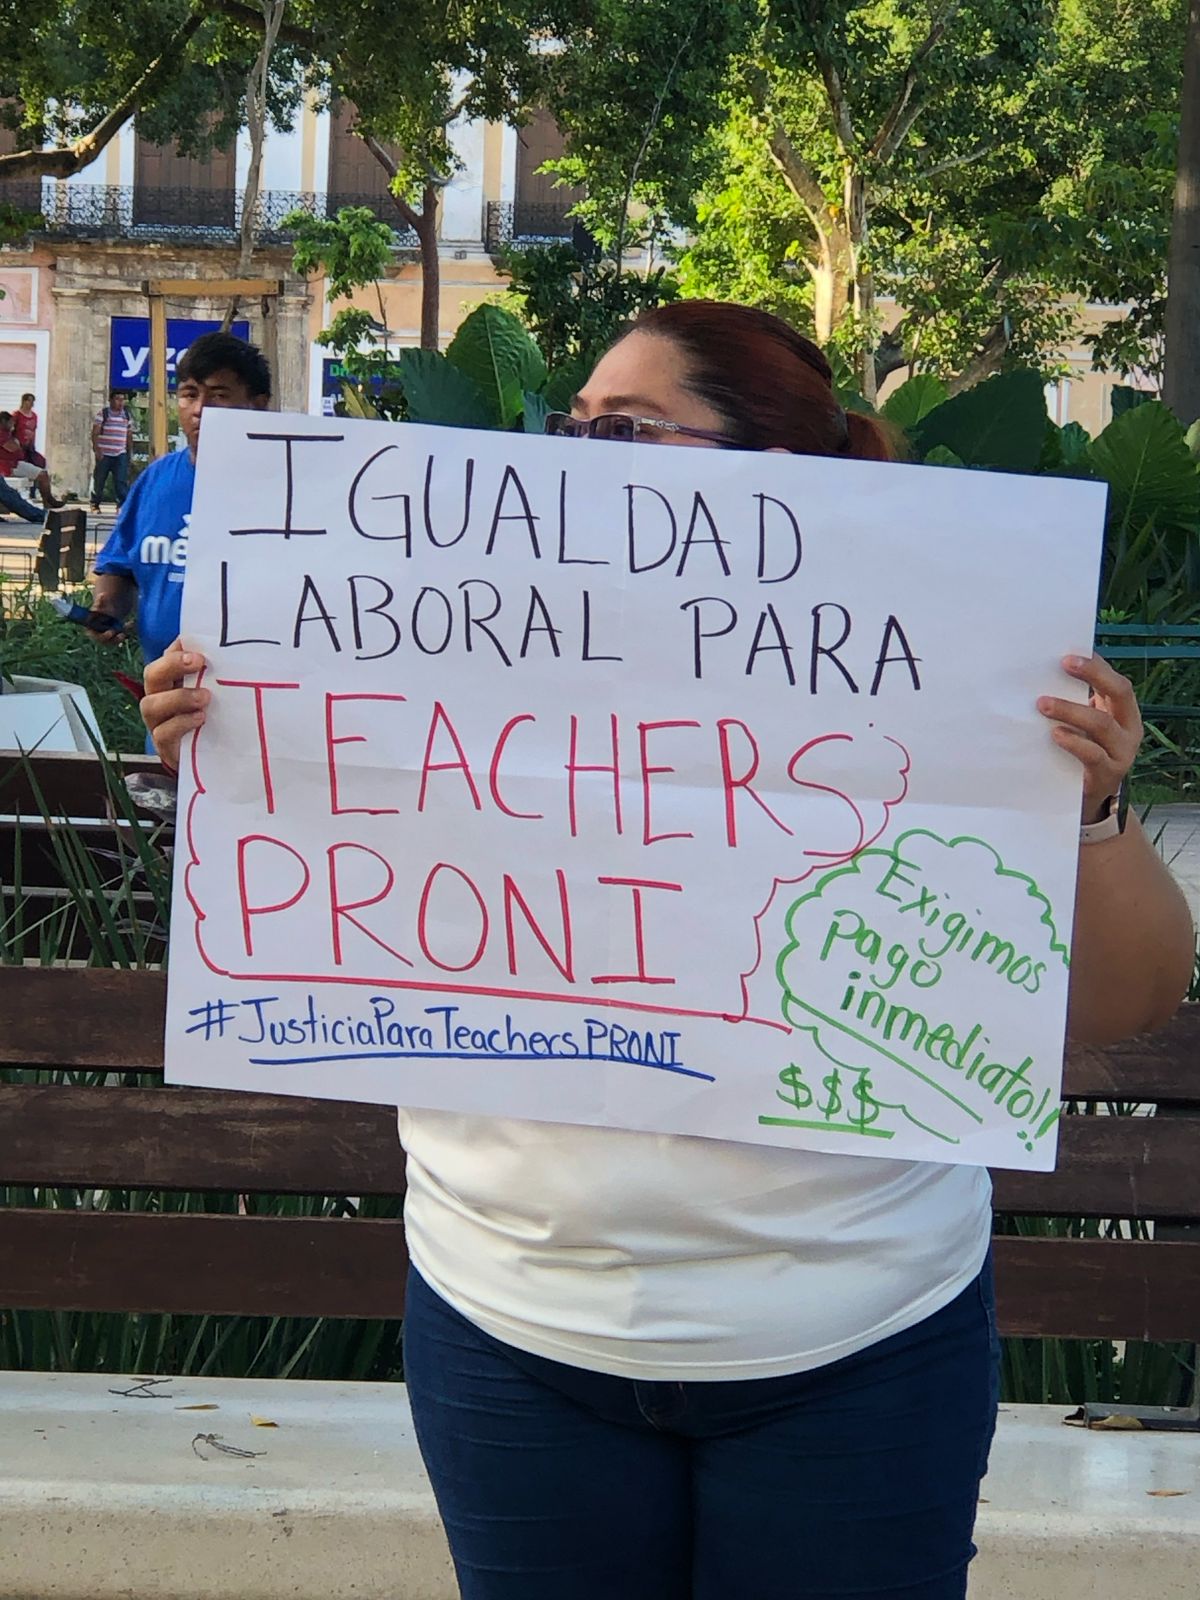 IGUALDAD
LABORAL PARA
TEACHERS
PRONI
#JusticiaParaTeachersPRONI
Exigimos
Pago
inmediato!!
$$$